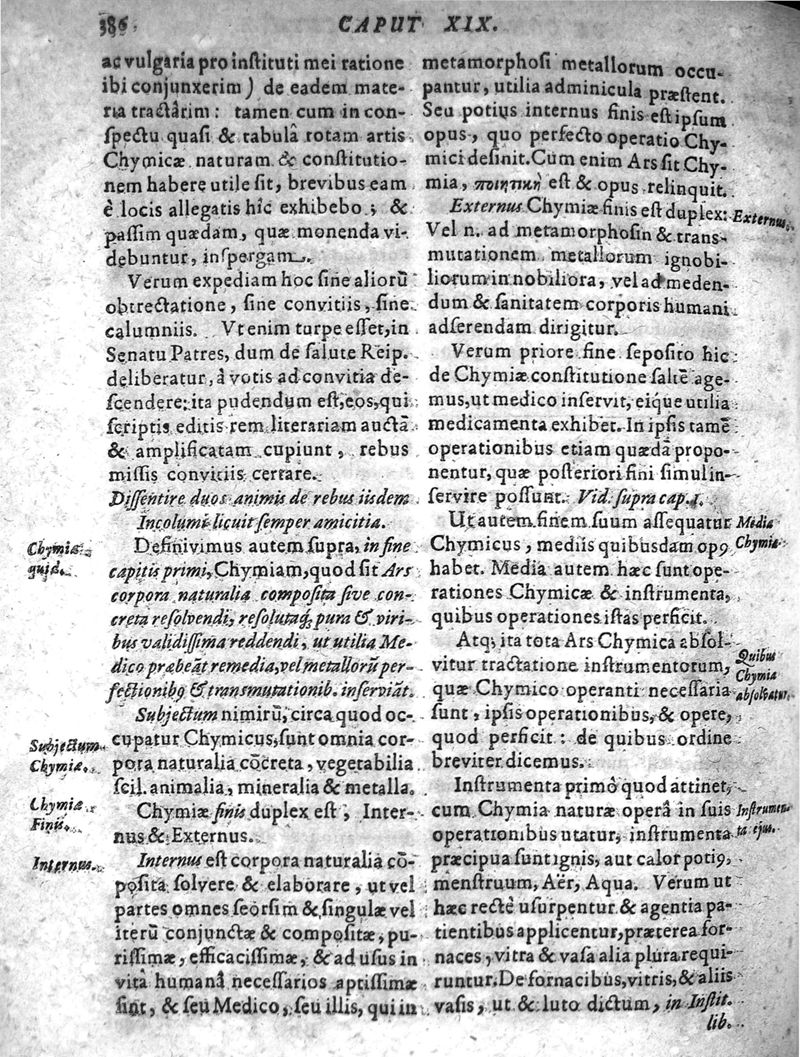 386
CAPUT XIX.
ac vulgaria pro instituti mei ratione
ibi conjunxerim) de eadem mate-
ria tractârim: tamen cum in con-
spectu quasi & tabulâ rotam artis
Chymicæ naturam & constitutio-
nem habere utile sit, brevibus eam
è locis allegatis hîc exhibebo; &
passim quædam, quæ monenda vi-
debuntur, inspergam.
Verum expediam hoc sine aliorū
obtrectatione, sine convitiis, sine
calumniis. Vt enim turpe esset, in
Senatu Patres, dum de salute Reip.
deliberatur, à votis ad convitia de-
scendere: ita pudendum est, eos, qui
scriptis editis rem literariam auctā
& amplificatam cupiunt, rebus
missis convitiis certare.
Dissentire duos animis de rebus iisdem
Incolumi licuit semper amicitia.
Chymia
quid.
Definivimus autem supra, in fine
capitis primi, Chymiam, quod sit Ars
corpora naturalia composita sive con-
creta resolvendi, resolutaq; pura & viri-
bus validissima reddendi, ut utilia Me-
dico præbeāt remedia, vel metallorū per-
fectionibꝰ & transmutationib. inserviāt.
Subjectum
Chymiæ.
Subjectum nimirū, circa quod oc-
cupatur Chymicus, sunt omnia cor-
pora naturalia cōcreta, vegetabilia
scil. animalia, mineralia & metalla.
Chymiæ
Finis.
Chymiæ finis duplex est, Inter-
nus & Externus.
Internus.
Internus est corpora naturalia cō-
posita solvere & elaborare, ut vel
partes omnes seorsim & singulæ vel
iterū conjunctæ & compositæ, pu-
rissimæ, efficacissimæ, & ad usus in
vitâ humanâ necessarios aptissimæ
sint, & seu Medico, seu illis, qui in
metamorphosi metallorum occu-
pantur, utilia adminicula præstent.
Seu potius internus finis est ipsum
opus, quo perfecto operatio Chy-
mici desinit. Cum enim Ars sit Chy-
mia, ποιητικὴ est & opus relinquit.
Externus Chymiæ finis est duplex:
Externus.
Vel n. ad metamorphosin & trans-
mutationem metallorum ignobi-
liorum in nobiliora, vel ad meden-
dum & sanitatem corporis humani
adserendam dirigitur.
Verum priore fine seposito hic
de Chymiæ constitutione saltē age-
mus, ut medico inservit, eique utilia
medicamenta exhibet. In ipsis tamē
operationibus etiam quædā propo-
nentur, quæ posteriori fini simul in-
servire possunt. Vid. supra cap. 1.
Ut autem finem suum assequatur
Media
Chymicus, mediis quibusdam opꝰ
Chymiæ
habet. Media autem hæc sunt ope-
rationes Chymicæ & instrumenta,
quibus operationes istas perficit.
Atq; ita tota Ars Chymica absol-
vitur tractatione instrumentorum,
Quibus
Chymia
absolvatur.
quæ Chymico operanti necessaria
sunt, ipsis operationibus, & opere,
quod perficit: de quibus ordine
breviter dicemus.
Instrumenta primò quod attinet,
cum Chymia naturæ operâ in suis
Instrumen-
ta ejus.
operationibus utatur, instrumenta
præcipua sunt ignis, aut calor potiꝰ,
menstruum, Aër, Aqua. Verum ut
hæc rectè usurpentur & agentia pa-
tientibus applicentur, præterea for-
naces, vitra & vasa alia plura requi-
runtur. De fornacibus, vitris, & aliis
vasis, ut & luto dictum, in Instit.
lib.